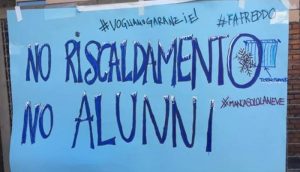 #VOGLIAMOGARANZIE! #FAFREDDO
NO RISCALDAMENTO
NO ALUNNI
#MANCASOLOLANEVE